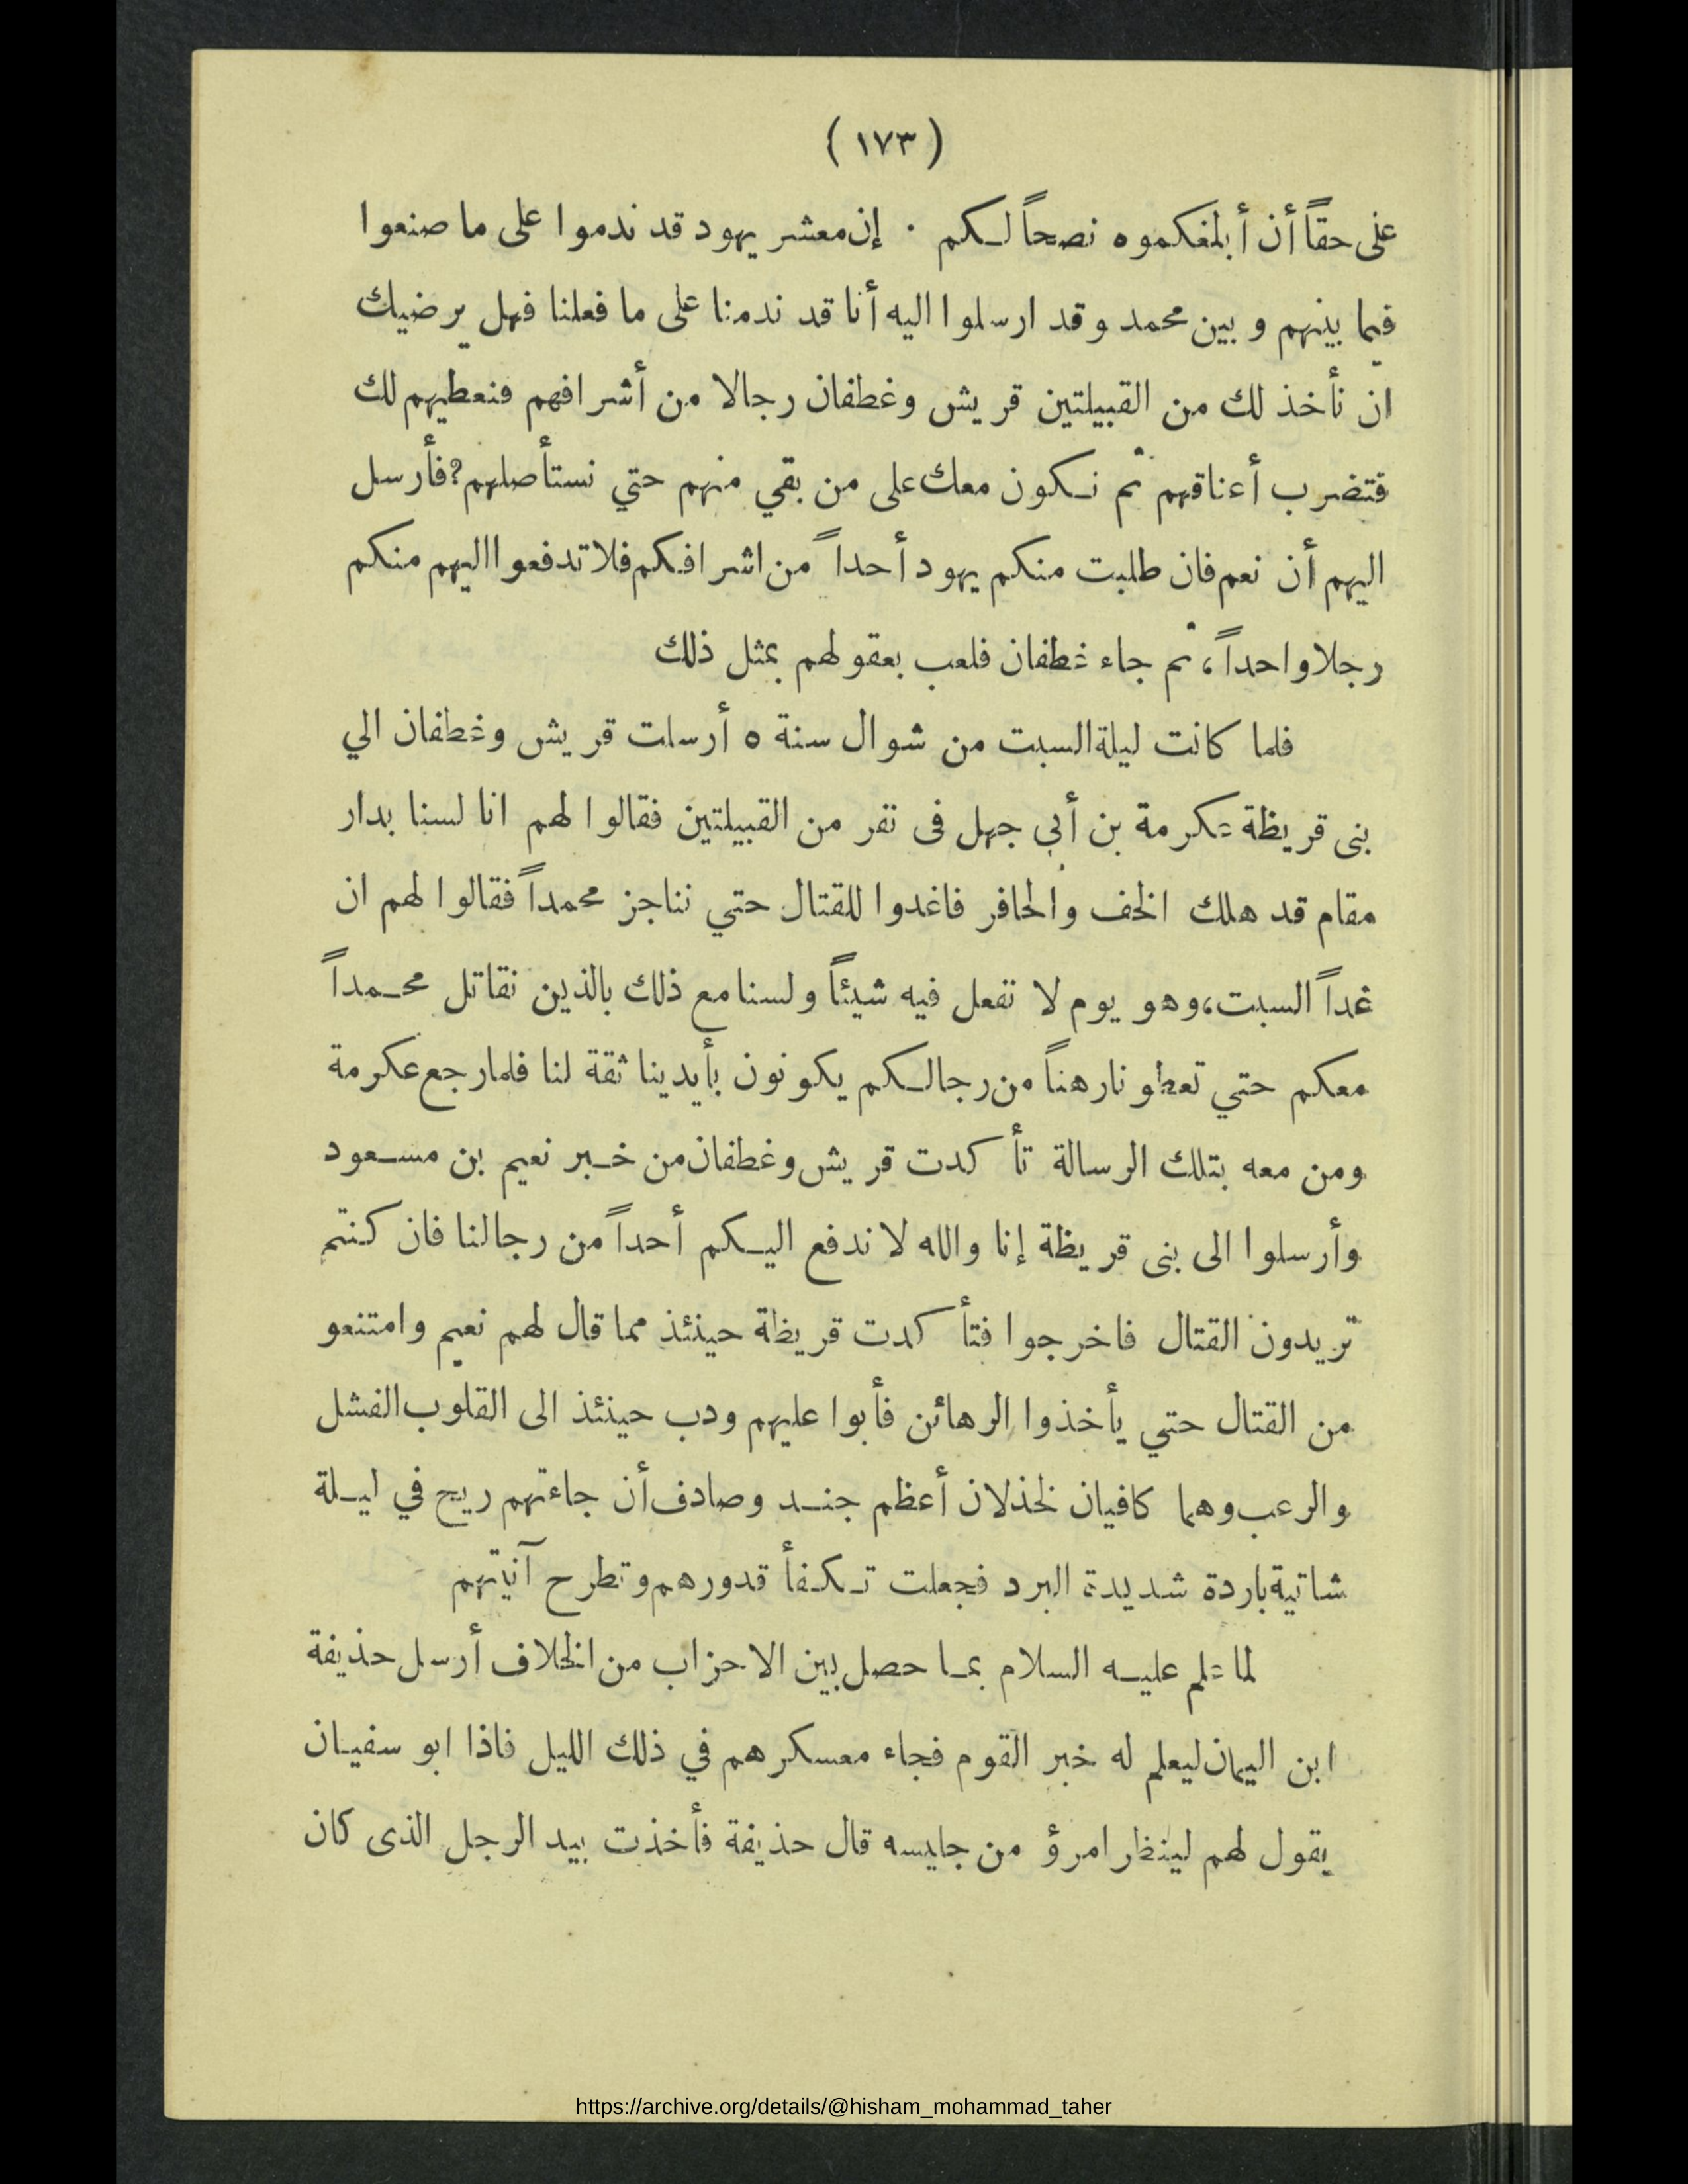 ( ١٧٣ )
على حقاً أن أبلغكموه نصحاً لكم . إن معشر يهود قد ندموا على ما صنعوا
فيما بينهم وبين محمد وقد ارسلوا اليه أنا قد ندمنا على ما فعلنا فهل يرضيك
ان نأخذ لك من القبيلتين قريش وغطفان رجالا من أشرافهم فنعطيهم لك
فتضرب أعناقهم ثم نكون معك على من بقي منهم حتي نستأصلهم؟ فأرسل
اليهم أن نعم فان طلبت منكم يهود أحداً من اشرافكم فلا تدفعوا اليهم منكم
رجلا واحداً، ثم جاء غطفان فلعب بعقولهم بمثل ذلك
فلما كانت ليلة السبت من شوال سنة ٥ أرسلت قريش وغطفان الي
بنى قريظة عكرمة بن أبي جهل فى نفر من القبيلتين فقالوا لهم انا لسنا بدار
مقام قد هلك الخف والحافر فاغدوا للقتال حتي نناجز محمداً فقالوا لهم ان
غداً السبت، وهو يوم لا نفعل فيه شيئاً ولسنا مع ذلك بالذين نقاتل محمداً
معكم حتي تعطونا رهناً من رجالكم يكونون بأيدينا ثقة لنا فلما رجع عكرمة
ومن معه بتلك الرسالة تأكدت قريش وغطفان من خبر نعيم بن مسعود
وأرسلوا الى بنى قريظة إنا والله لا ندفع اليكم أحداً من رجالنا فان كنتم
تريدون القتال فاخرجوا فتأكدت قريظة حينئذ مما قال لهم نعيم وامتنعو
من القتال حتي يأخذوا الرهائن فأبوا عليهم ودب حينئذ الى القلوب الفشل
والرعب وهما كافيان لخذلان أعظم جند وصادف أن جاءتهم ريح في ليلة
شاتية باردة شديدة البرد فجعلت تكفأ قدورهم وتطرح آنيتهم
لما علم عليه السلام بما حصل بين الاحزاب من الخلاف أرسل حذيفة
ابن اليمان ليعلم له خبر القوم فجاء معسكرهم في ذلك الليل فاذا ابو سفيان
يقول لهم لينظر امرؤ من جليسه قال حذيفة فأخذت بيد الرجل الذى كان
https://archive.org/details/@hisham_mohammad_taher